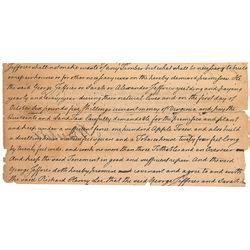 Jeffries shall not make waste of any Timber but what shall be necessary to build
or repair houses or for other necessary uses on the hereby demised premises. He
the said George Jeffries or Sarah or Alexander Jeffries yielding and paying
yearly and every year during their natural lives and on the first day of
October five pounds five Shillings current money of Virginia and pay the
Quitrents and Land Tax lawfully demandable for the premises and plant
and keep under a sufficient fence one hundred Apple Trees and also build
a dwelling house and a Tobacco house twenty four feet long
by twenty feet wide, and work no more than three Tithables and an Overseer
And keep the said Tenement in good and sufficient repair. And the said
George Jeffries doth hereby promise covenant and agree to and with
the said Richard that the said George Jeffries and Sarah